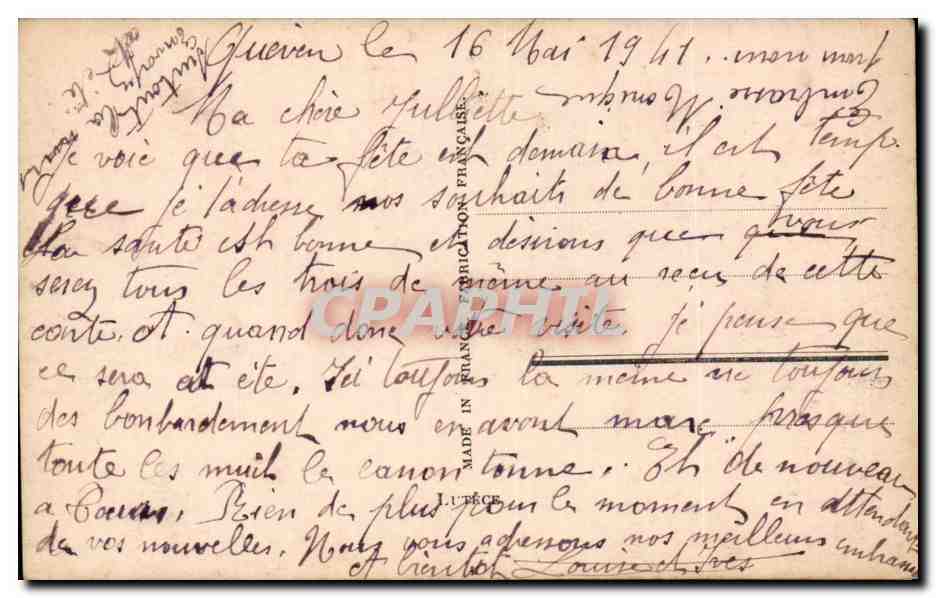 Queven le 16 Mai 1941.
Ma chère Julliette
Je voie que ta fête est demain, il est temp
que je t'adresse nos souhaits de bonne fête
La santé est bonne et désirons que vous
serez tous les trois de même au reçu de cette
carte. Et quand donc votre visite. Je pense que
ce sera cet été. Ici toujours la même vie toujours
des bombardement nous en avont mare presque
toute les nuit le canon tonne. Et de nouveau
a Rien de plus pour le moment en attendant
de vos nouvelles. Nous vous adressons nos meilleurs embrasse
et bientôt Louise et Yves
MADE IN FRANCE FABRICATION FRANÇAISE.
LUTÈCE
CPARPHIL